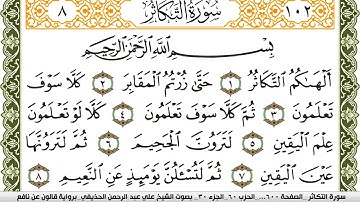 ٨ سُورَةُ التَّكَاثُرِ ١٠٢
بِسْمِ اللَّهِ الرَّحْمَٰنِ الرَّحِيمِ
أَلْهَاكُمُ التَّكَاثُرُ ١ حَتَّىٰ زُرْتُمُ الْمَقَابِرَ ٢ كَلَّا سَوْفَ
تَعْلَمُونَ ٣ ثُمَّ كَلَّا سَوْفَ تَعْلَمُونَ ٤ كَلَّا لَوْ تَعْلَمُونَ
عِلْمَ الْيَقِينِ ٥ لَتَرَوُنَّ الْجَحِيمَ ٦ ثُمَّ لَتَرَوُنَّهَا
عَيْنَ الْيَقِينِ ٧ ثُمَّ لَتُسْأَلُنَّ يَوْمَئِذٍ عَنِ النَّعِيمِ ٨
سورة التكاثر .الصفحة ٦٠٠... الحزب ٦٠ .الجزء ٣٠ . بصوت الشيخ علي عبد الرحمن الحذيفي .برواية قالون عن نافع